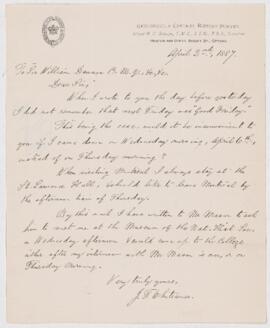 GEOLOGICAL & NATURAL HISTORY SURVEY,
April 2nd, 1887.
To Sir William Dawson
Dear Sir,
When I wrote to you the day before yesterday
I did not remember that next Friday was "Good Friday".
This being the case would it be inconvenient to
you if I came down on Wednesday morning, April 6th,
instead of on Thursday morning?
When visiting Montreal I always stay at the
St. Lawrence Hall, & should like to leave Montreal by
the afternoon train of Thursday.
By this mail I have written to Mr Mason to ask
him to meet me at the Museum of the Nat. Hist. Soc.
on Wednesday afternoon & would come up to the College
either after my interview with Mr Mason is over, or on
Thursday morning.
Very truly yours,
J. F. Whiteaves